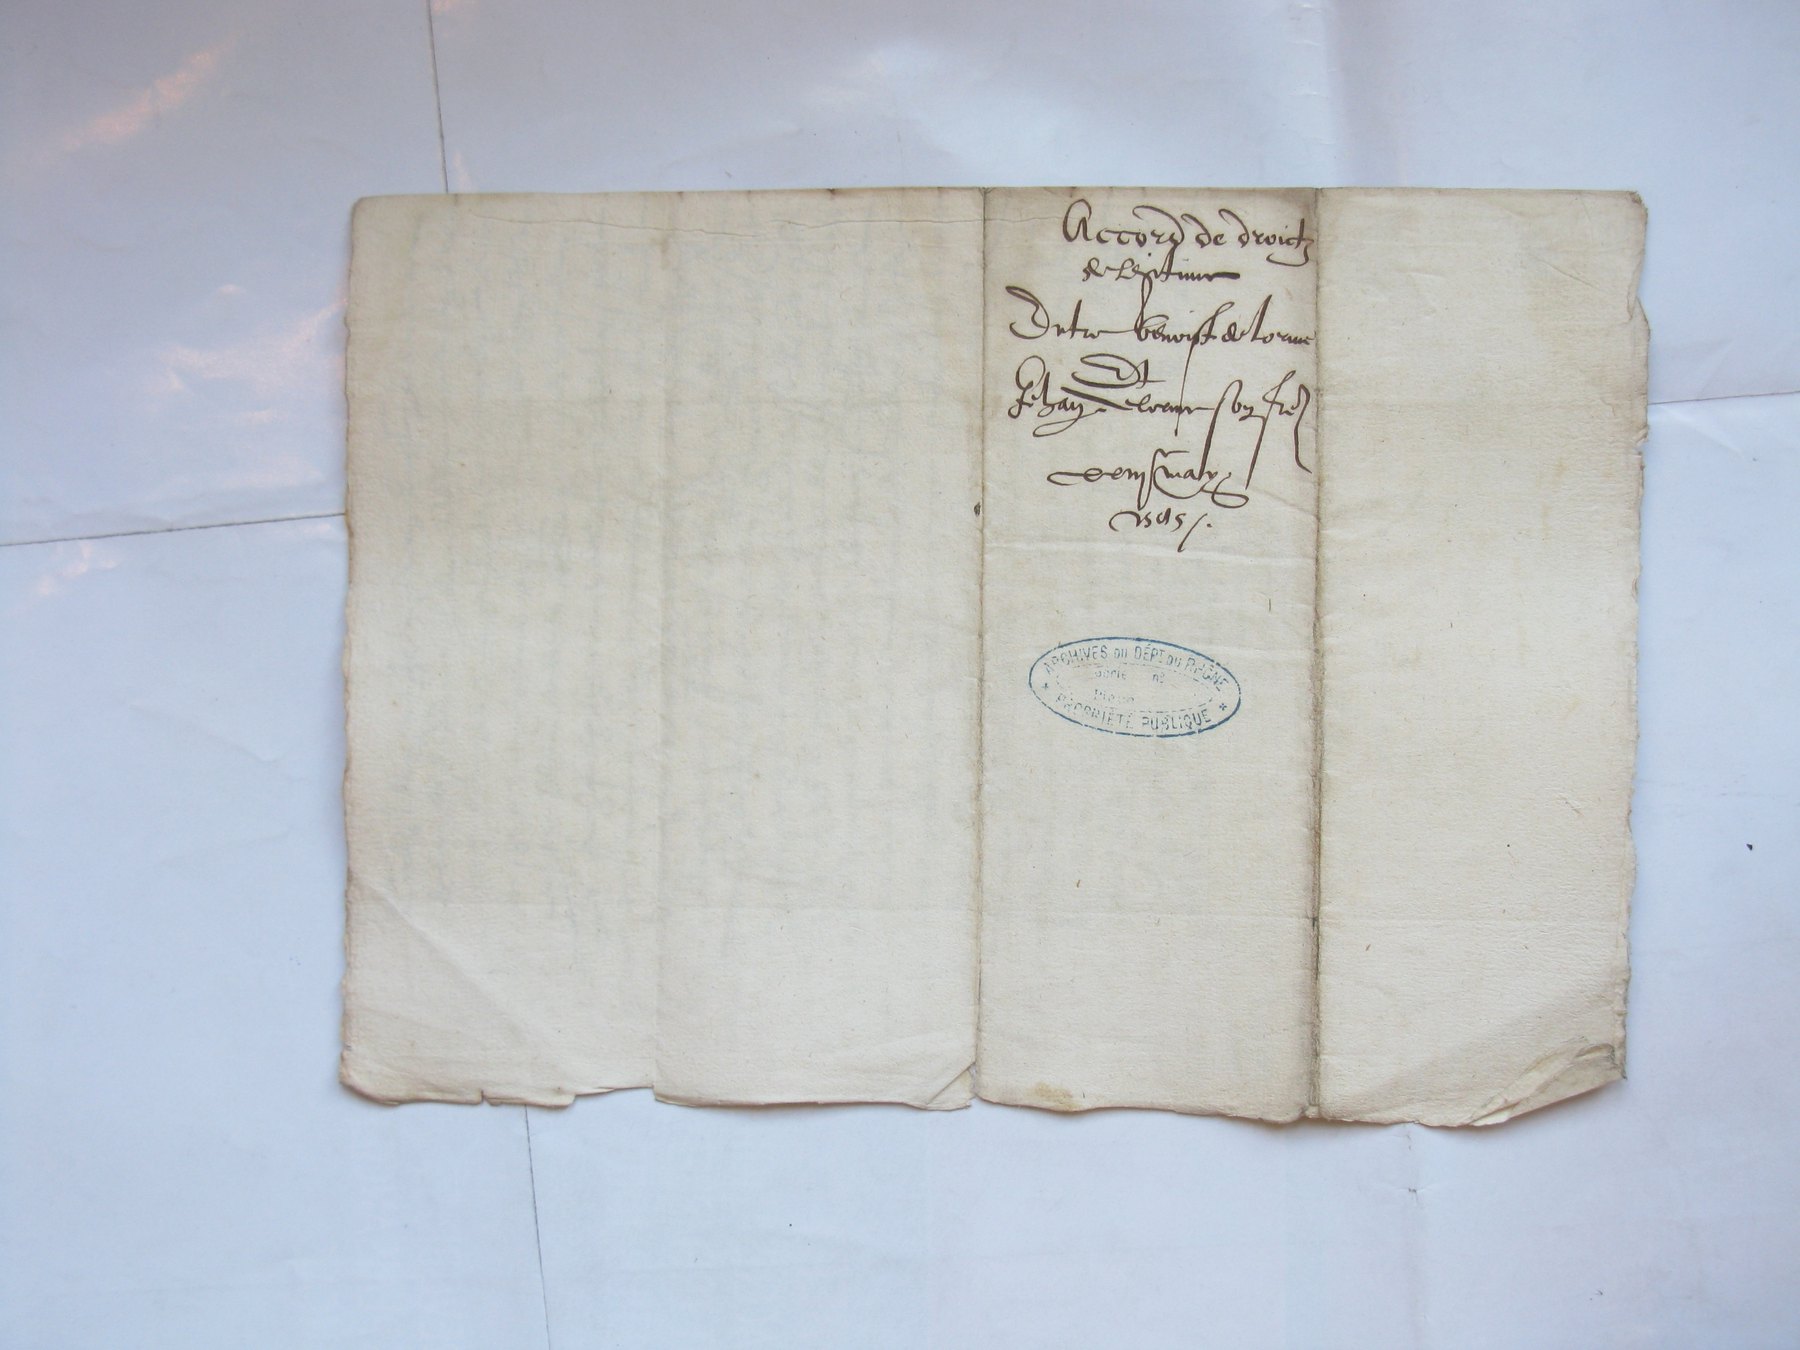 Accord de droictz
de legitime
Entre benoist de lorme
Et
Jehan delorme son frere
may
ARCHIVES DU DÉPT DU RHÔNE
PROPRIÉTÉ PUBLIQUE